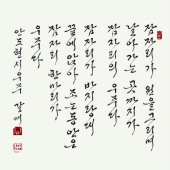 잠자리가 원을 그리며
날아가는 곳까지가
잠자리의 우주다
잠자리가 바지랑대
끝에 앉아 조는 동안은
잠자리 한마리가
우주다
안도현시 우주